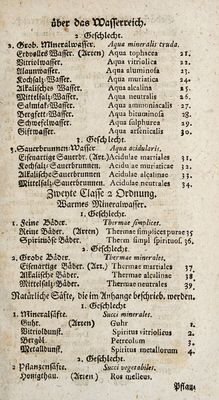 über das Wasserreich.
2 Geschlecht.
2. Grob. Mineralwasser. Aqua mineralis cruda.
Erdvolles Wasser. (Arten) Aqua tophacea 21.
Vitriolwasser. Aqua vitriolica 22.
Alaunwasser. Aqua aluminosa 23.
Kochsalz-Wasser. Aqua muriatica 24.
Alkalisches Wasser. Aqua alcalina 25.
Mittelsalz-Wasser. Aqua neutralis 26.
Salmiak-Wasser. Aqua ammoniacalis 27.
Bergfett-Wasser. Aqua bituminosa 28.
Schwefelwasser. Aqua sulphurea 29.
Giftwasser. Aqua arsenicalis 30.
3 Geschlecht.
3. Sauerbrunnen-Wasser Aqua acidularis.
Eisenartige Sauerbr. (Art.) Acidulae martiales 31.
Kochsalz-Sauerbrunnen. Acidulae muriaticae 32.
Alkalische Sauerbrunnen Acidulae alcalinae 33.
Mittelsalz-Sauerbrunnen. Acidulae neutrales 34.
Zweyte Classe 2 Ordnung.
Warmes Mineralwasser.
1 Geschlecht.
1. Feine Bäder. Thermae simplices.
Reine Bäder. (Arten) Thermae simplices purae 35
Spirituöse Bäder. Therm simpl spirituos. 36.
2 Geschlecht.
2. Grobe Bäder Thermae minerales.
Eisenartige Bäder. (Art.) Thermae martiales 37.
Alkalische Bäder Thermae alcalinae 38.
Mittelsalz-Bäder Thermae neutrales 39.
Natürliche Säfte, die im Anhange beschrieb. werden.
1 Geschlecht.
1 Mineralsäfte. Succi minerales.
Guhr. (Arten) Guhr 1.
Vitrioldunst. Spiritus vitriolicus 2.
Bergöl. Petroleum 3.
Metalldunst. Spiritus metallorum 4.
2 Geschlecht.
2 Pflanzensäfte. Succi vegetabiles.
Honigthau. (Arten) Ros melleus.
Pflan-